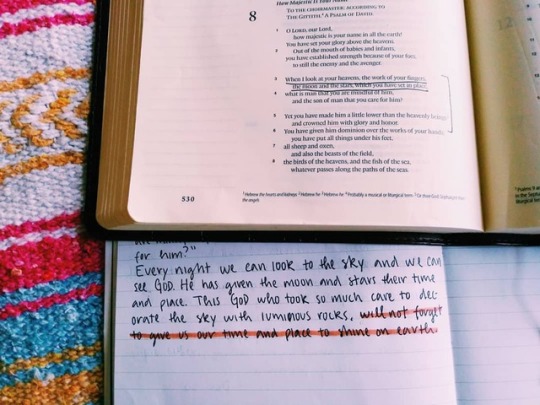 How Majestic Is Your Name
8
TO THE CHOIRMASTER: ACCORDING TO
THE GITTITH. A PSALM OF DAVID.
1 O LORD, our Lord,
how majestic is your name in all the earth!
You have set your glory above the heavens.
2 Out of the mouth of babies and infants,
you have established strength because of your foes,
to still the enemy and the avenger.
3 When I look at your heavens, the work of your fingers,
the moon and the stars, which you have set in place,
4 what is man that you are mindful of him,
and the son of man that you care for him?
5 Yet you have made him a little lower than the heavenly beings
and crowned him with glory and honor.
6 You have given him dominion over the works of your hands;
you have put all things under his feet,
7 all sheep and oxen,
and also the beasts of the field,
8 the birds of the heavens, and the fish of the sea,
whatever passes along the paths of the seas.
530
the angels
12
for him?"
Every night we can look to the sky and we can
see GOD. He has given the moon and stars their time
and place. This GOD who took so much care to dec-
orate the sky with luminous rocks, will not forget
to give us our time and place to shine on earth.